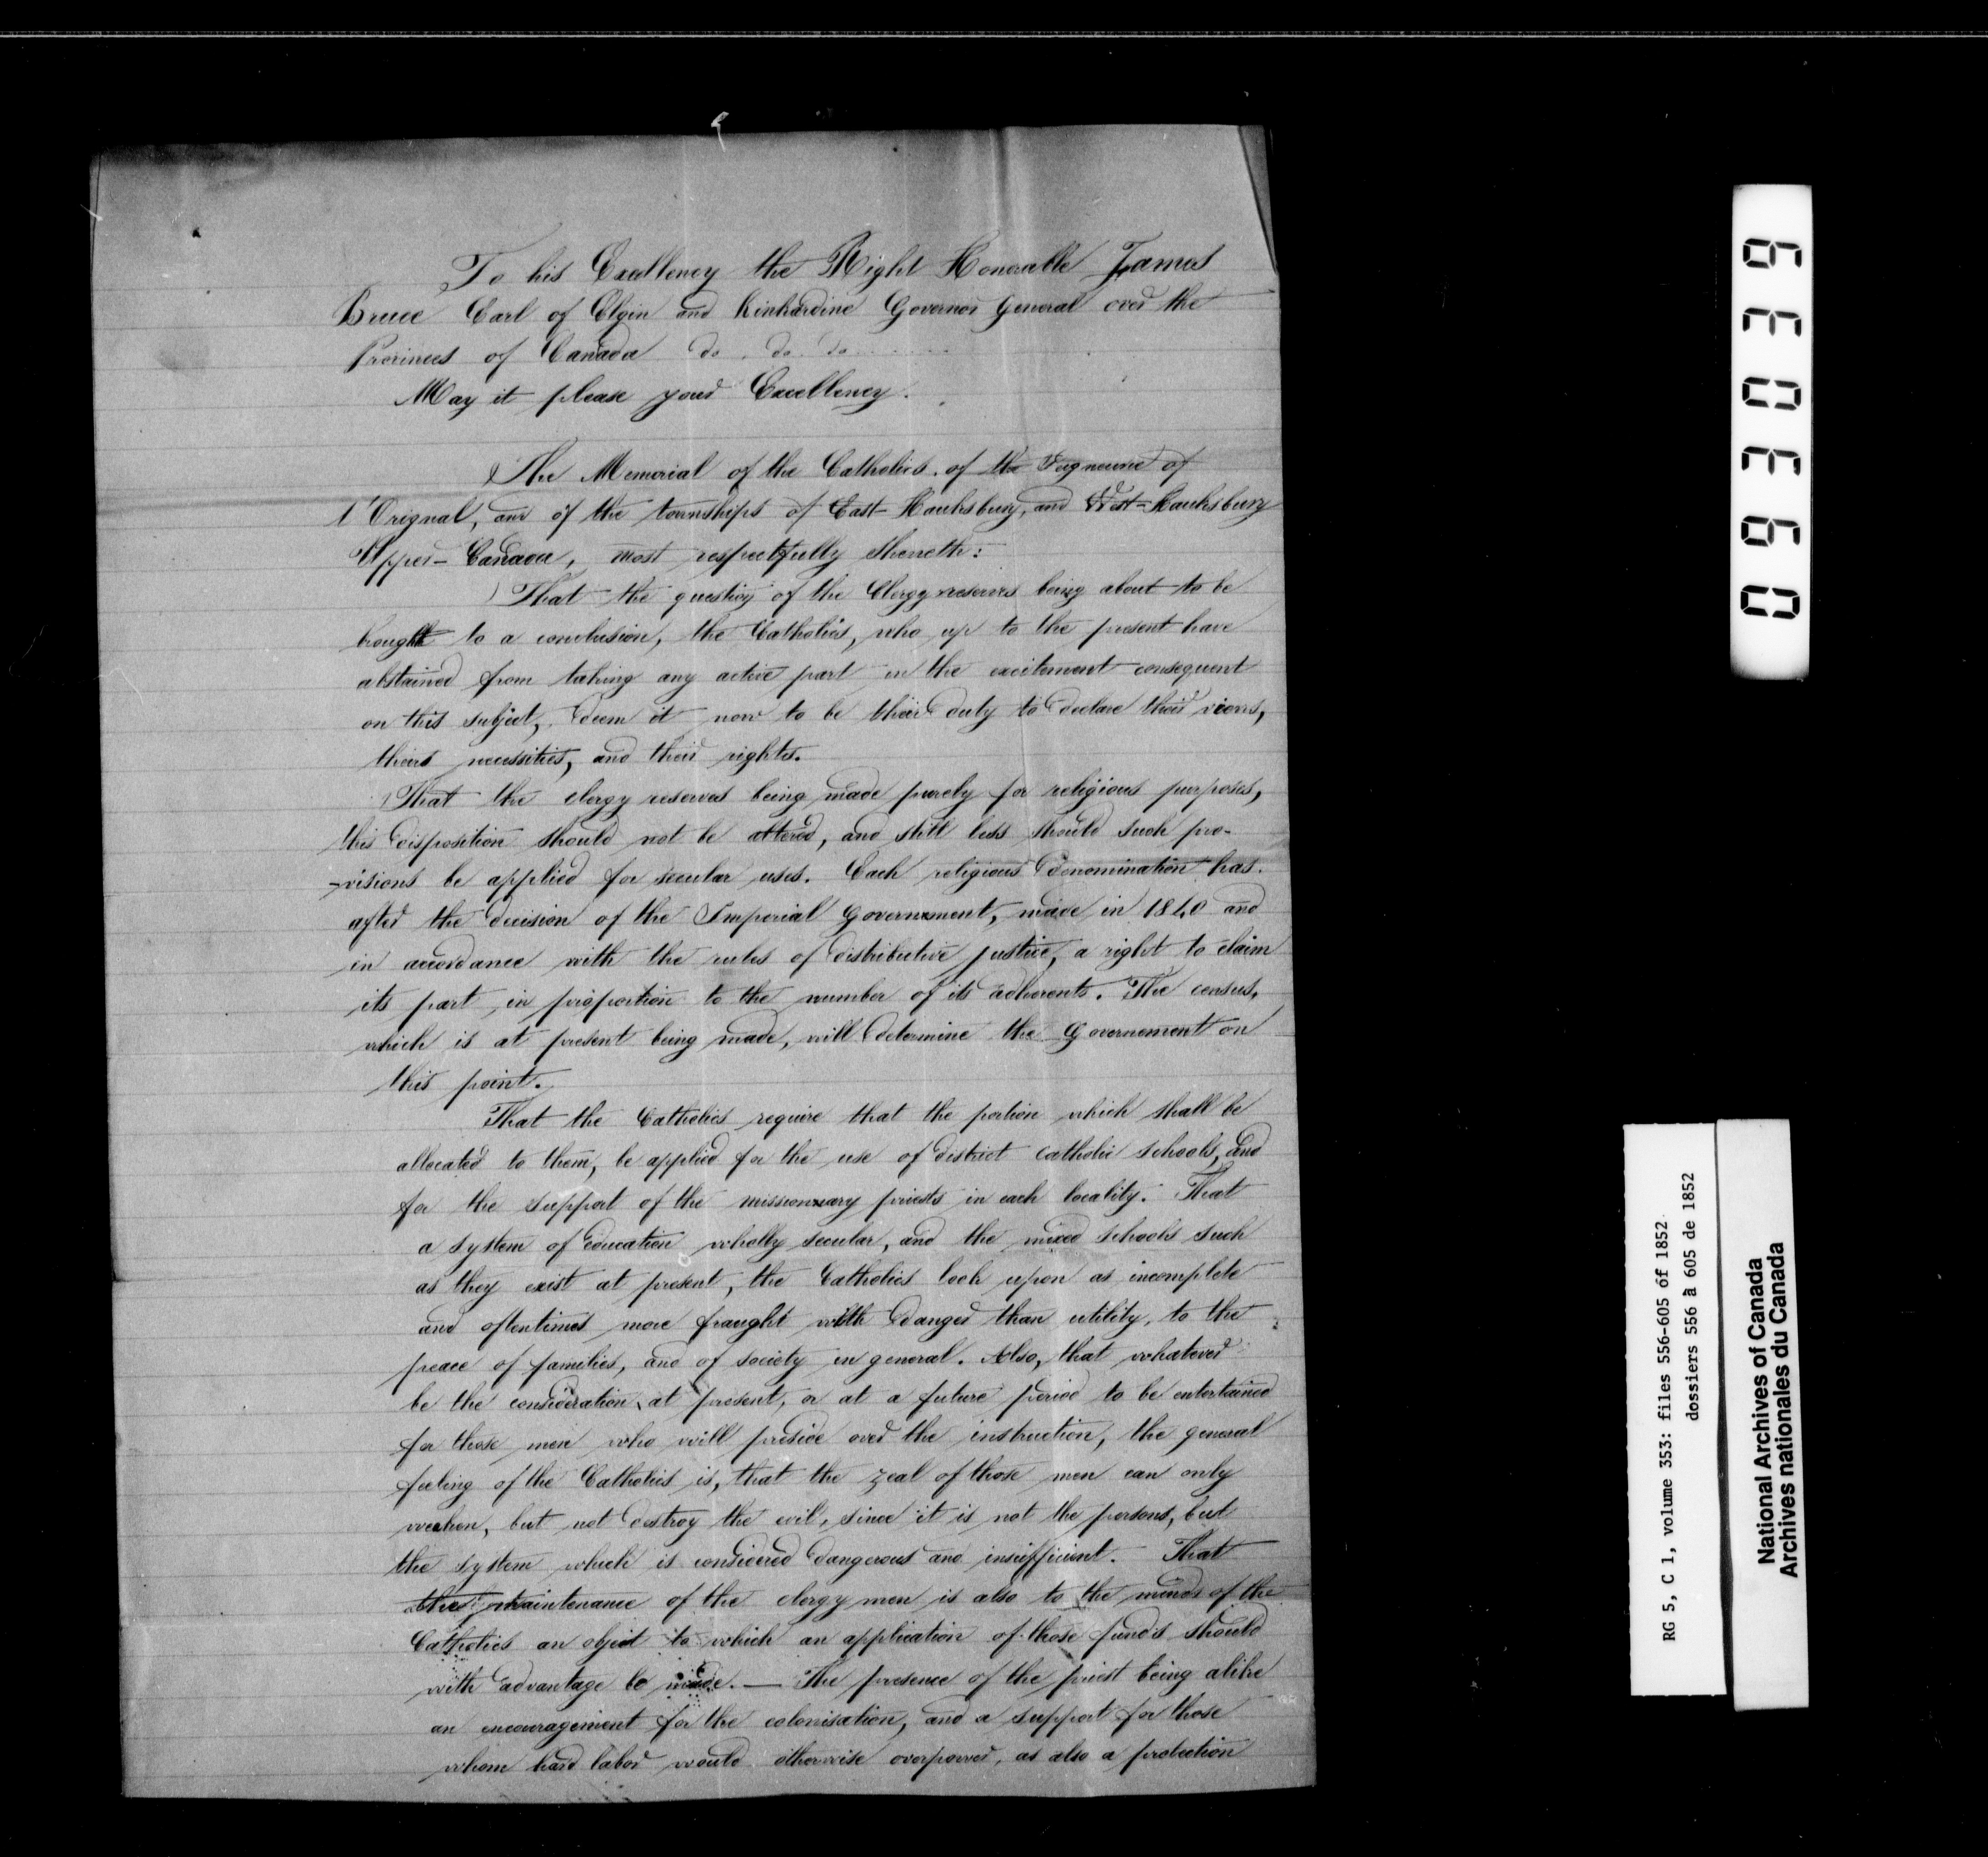 To his Excellency the Right Honorable James
Bruce Earl of Elgin and Kinkardine Governor General over the
Provinces of Canada do. do. do
May it please your Excellency.
The Memorial of the Catholics of the Seigneurie of
l'Orignal, and of the townships of East-Hauksbury, and West-Hauksbury
Upper-Canada, most respectfully sheweth:
That the question of the Clergy reserves being about to be
brought to a conclusion, the Catholics, who up to the present have
abstained from taking any active part in the excitement consequent
on this subject, deem it now to be their duty to declare their views,
theirs necessities, and their rights.
That the clergy reserves being made purely for religious purposes,
this disposition should not be altered, and still less should such pro-
-visions be applied for secular uses. Each religious denomination has.
after the decision of the Imperial Government, made in 1840 and
in accordance with the rules of distributive justice, a right to claim
its part in proportion to the number of its adherents. The census,
which is at present being made, will determine the Governement on
this point.
That the Catholics require that the portion which shall be
allocated to them, be applied for the use of district catholic schools, and
for the support of the missionnary priests in each locality. That
a system of education wholly secular, and the mixed schools such
as they exist at present, the Catholics look upon as incomplete
and oftentimes more fraught with danger than utility, to the
peace of families, and of society in general. Also, that whatever
be the consideration, at present, or at a future period to be entertained
for those men who will preside over the instruction, the general
feeling of the Catholics is, that the zeal of those men can only
weaken, but not destroy the evil, since it is not the persons, but
the system which is considered dangerous and insufficient. That
the maintenance of the clergy men is also to the minds of the
Catholics an object to which an application of those funds should
with advantage be made. — The presence of the priest being alike
an encouragement for the colonisation, and a support for those
whom hard labor would otherwise overpower, as also a protection
060369
RG 5, C 1, volume 353: files 556-605 of 1852
dossiers 556 à 605 de 1852
National Archives of Canada
Archives nationales du Canada